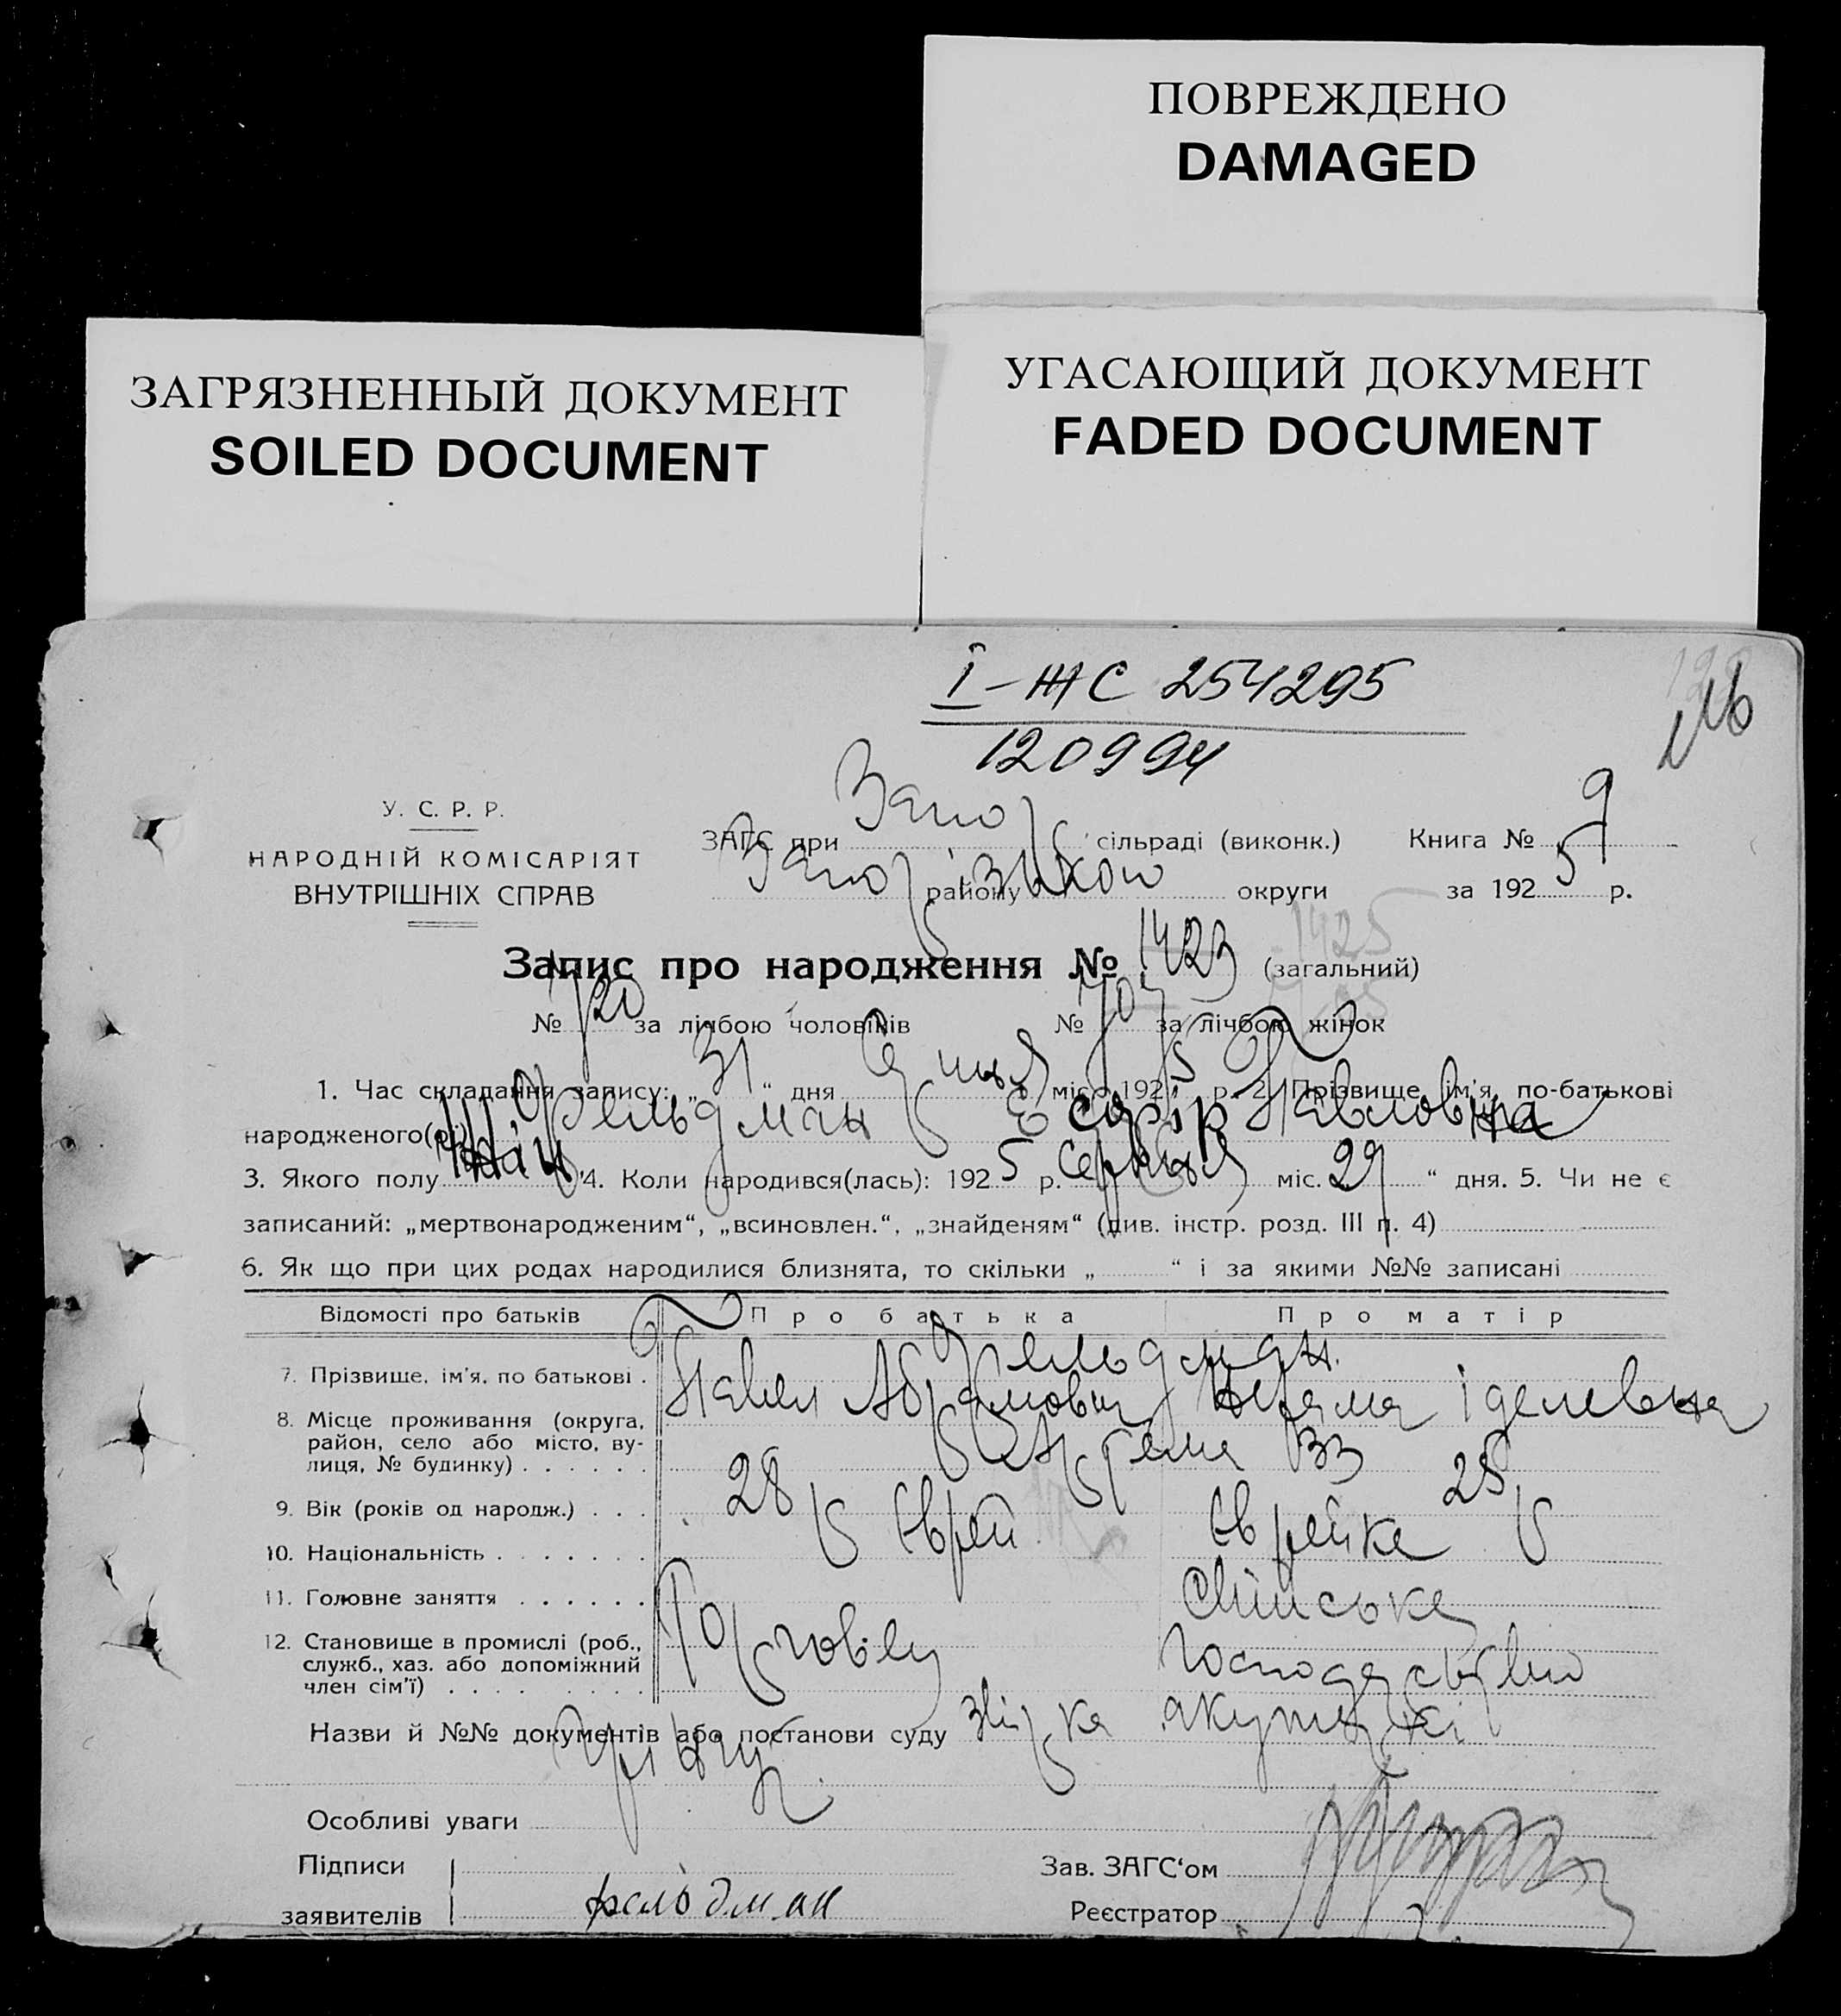 ПОВРЕЖДЕНО
DAMAGED
ЗАГРЯЗНЕННЫЙ ДОКУМЕНТ
SOILED DOCUMENT
УГАСАЮЩИЙ ДОКУМЕНТ
FADED DOCUMENT
І-ЖС 254295
120994
У. С. Р. Р.
НАРОДНІЙ КОМІСАРІЯТ
ВНУТРІШНІХ СПРАВ
ЗАГС при Запор сільраді (виконк.) Книга № 9
Запорізької району округи за 1925 р.
Запис про народження № 1423 (загальний)
1425
№ 720 за лічбою чоловіків № 704 за лічбою жінок
1. Час складання запису: „31“ дня міс. 1925 р. 2. Прізвище, ім'я, по-батькові
народженого(ої) Фельдман Павлов
3. Якого полу 4. Коли народився(лась): 1925 р. Серпня міс. 29 “ дня. 5. Чи не є
записаний: „мертвонародженим“, „всиновлен.“, „знайденям“ (див. інстр. розд. III п. 4)
6. Як що при цих родах народилися близнята, то скільки „ “ і за якими №№ записані
Відомості про батьків Про батька Про матір
7. Прізвище, ім'я, по батькові . Фельдман.
Павел Абрамович Іделевна
8. Місце проживання (округа,
район, село або місто, ву-
лиця, № будинку) . . . . . . Артема 33
9. Вік (років од народж.) . . . 28 25
10. Національність . . . . . . . Єврей Єврейка
11. Головне заняття . . . . . . Торговец Сільське
12. Становище в промислі (роб., господарство
служб., хаз. або допоміжний
член сім'ї) . . . . . . . . .
Назви й №№ документів або постанови суду акушерки
Особливі уваги
Підписи Зав. ЗАГС'ом
заявителів фельдман Реєстратор